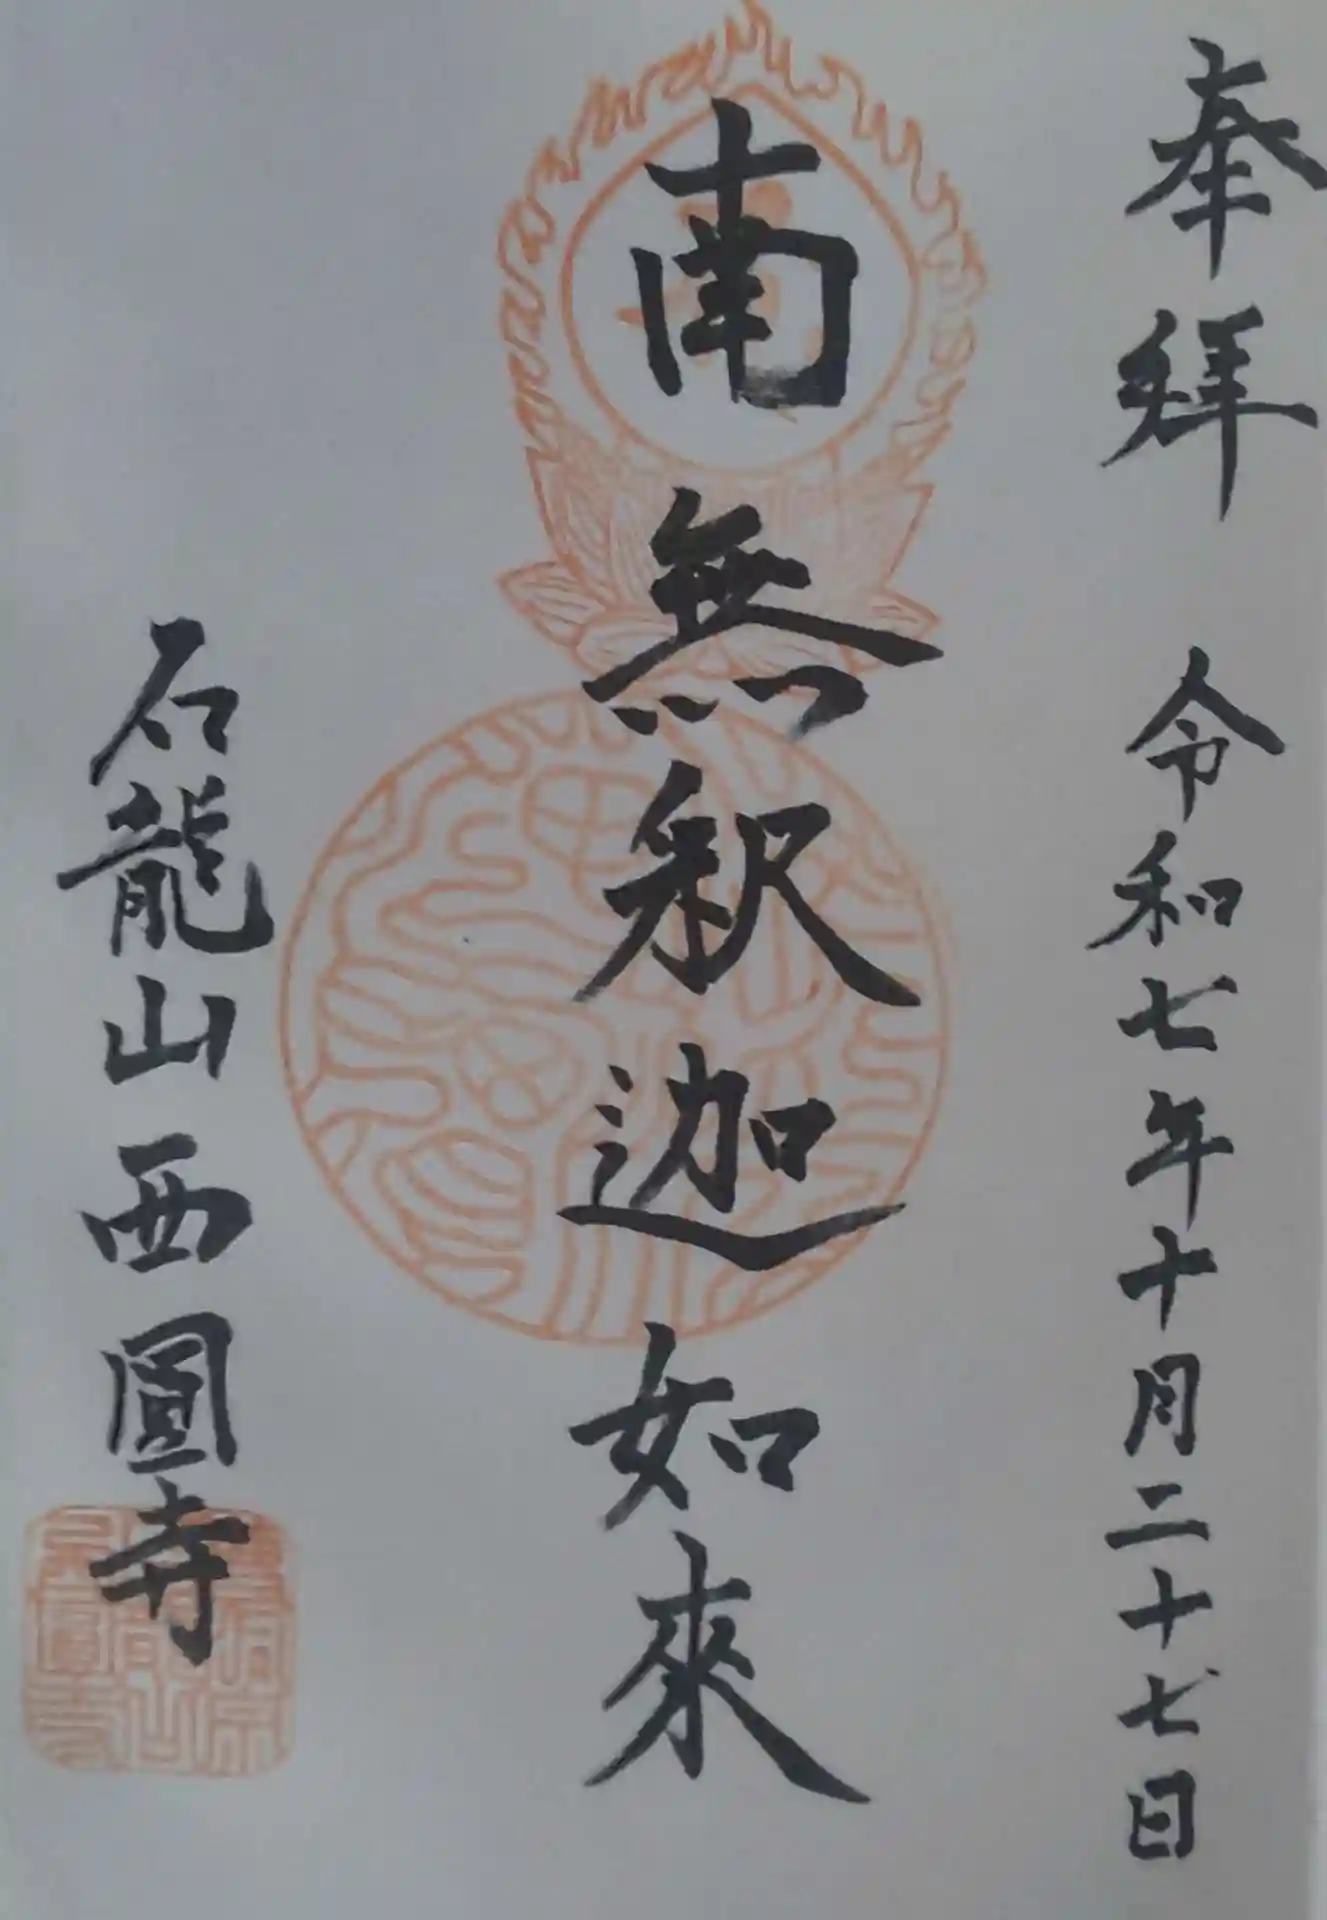 奉拝 令和七年十月二十七日
南無釈迦如來
石龍山西圓寺